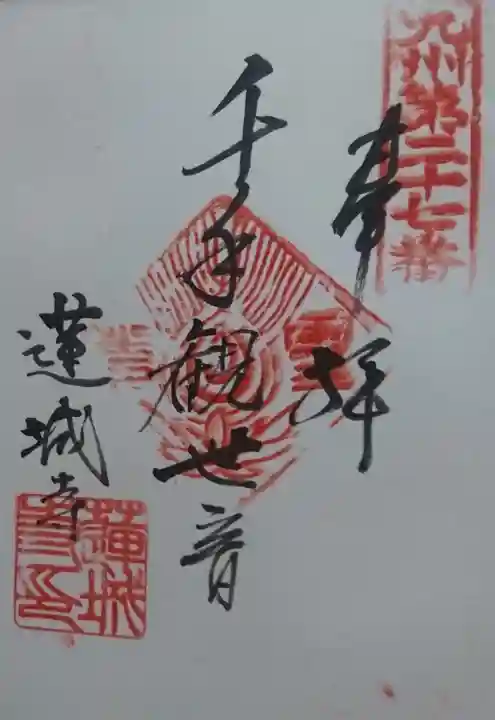 九州第二十七番
奉拝
千手観世音
蓮城寺
蓮城寺印